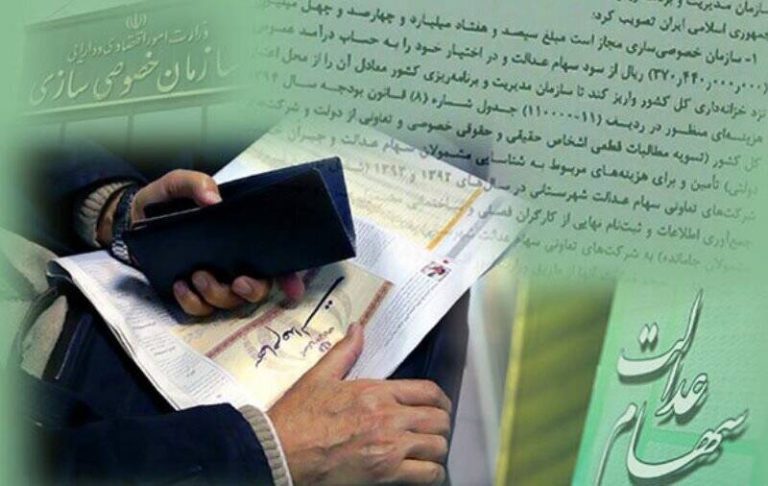 وزارت امور اقتصادی و دارایی
سازمان خصوصی سازی
سازمان مدیریت و
جمهوری اسلامی ایران تصویب کرد:
۱- سازمان خصوصی‌سازی مجاز است مبلغ سیصد و هفتاد میلیارد و چهارصد و چهل میلیون
(۳۷۰٫۴۴۰٫۰۰۰٫۰۰۰) ریال از سود سهام عدالت و در اختیار خود را به حساب درآمد عمومی
نزد خزانه‌داری کل کشور واریز کند تا سازمان مدیریت و برنامه‌ریزی کشور معادل آن را از محل اعتبار
هزینه‌ای منظور در ردیف (۱۱-۱۱۰۰۰۰) جدول شماره (۸) قانون بودجه سال ۱۳۹۴
کل کشور (تسویه مطالبات قطعی اشخاص حقیقی و حقوقی خصوصی و تعاونی از دولت و شرکت
دولتی) تأمین و برای هزینه‌های مربوط به شناسایی مشمولان سهام عدالت و جبران
شرکت‌های تعاونی سهام عدالت شهرستانی در سال‌های ۱۳۹۲ و ۱۳۹۳
جمع‌آوری اطلاعات و ثبت‌نام نهایی از کارگران فصلی و ساختمانی
جامانده) به شرکت‌های تعاونی سهام عدالت شهرستانی
سهام عدالت
سهام
عدالت